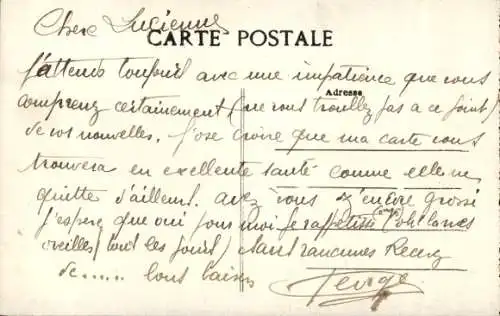 Chere Lucienne
CARTE POSTALE
J'attends toujours avec une impatience que vous
Adresse
comprenez certainement (ne vous troublez pas a ce point)
de vos nouvelles. J'ose croire que ma carte vous
trouvera en excellente santé comme elle me
quitte d'ailleurs. avez vous encore grossi
J'espere que oui pour moi je
oreilles tout les jours) Sans rancunes Recevez
de...... bons baisers